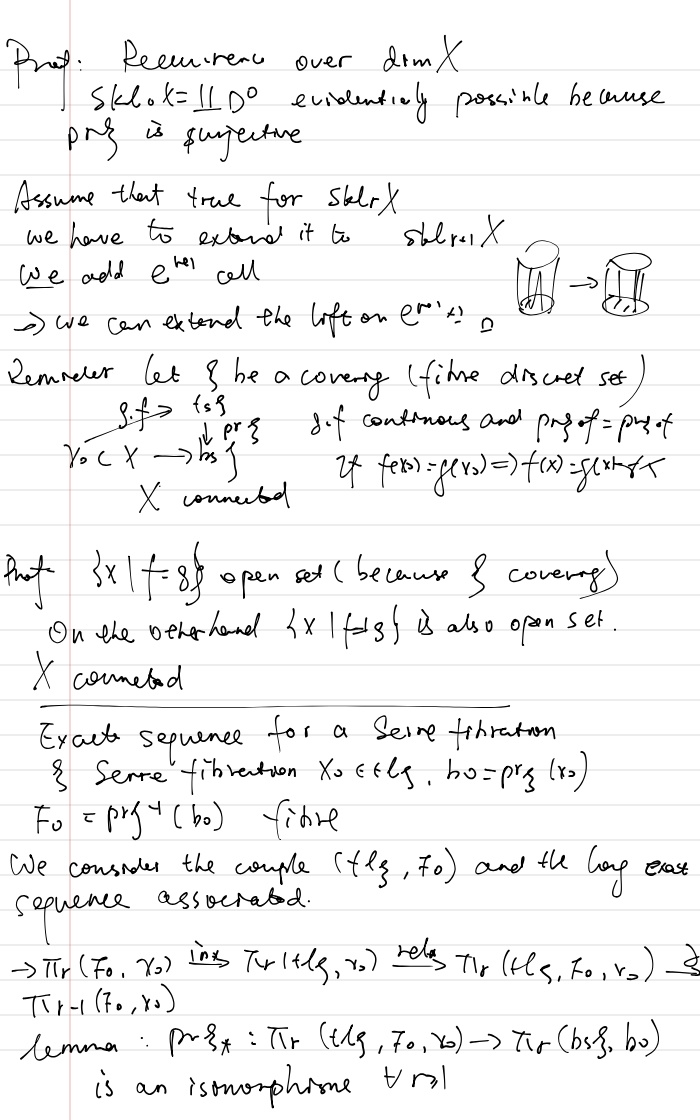 Proof: Recurrence over dim X
Skl₀X = ∐ D⁰ evidently possible because
prξ is surjective
Assume that true for sklrX
we have to extend it to sklr+1 X
we add e^{r+1} cell
→ we can extend the lift on e^{r+1}
Reminder let ξ be a covering (fibre discret set)
g.f → tsξ
g.f continous and prξ∘f = prξ∘f
↓ prξ
x₀ ⊂ X → bsξ
If f(x₀) = g(x₀) => f(x) = g(x) ∀x
X connected
Proof {x | f=g} open set (because ξ covering)
On the other hand {x | f≠g} is also open set.
X connected
Exact sequence for a Serre fibration
ξ Serre fibration x₀ ∈ tlξ, b₀ = prξ (x₀)
F₀ = prξ⁻¹ (b₀) fibre
We consider the couple (tlξ, F₀) and the long exact
sequence associated.
→ πr (F₀, x₀) in* → πr (tlξ, x₀) rel* → πr (tlξ, F₀, x₀) ∂ →
πr-1 (F₀, x₀)
lemma : prξ* : πr (tlξ, F₀, x₀) → πr (bsξ, b₀)
is an isomorphisme ∀ r≥1